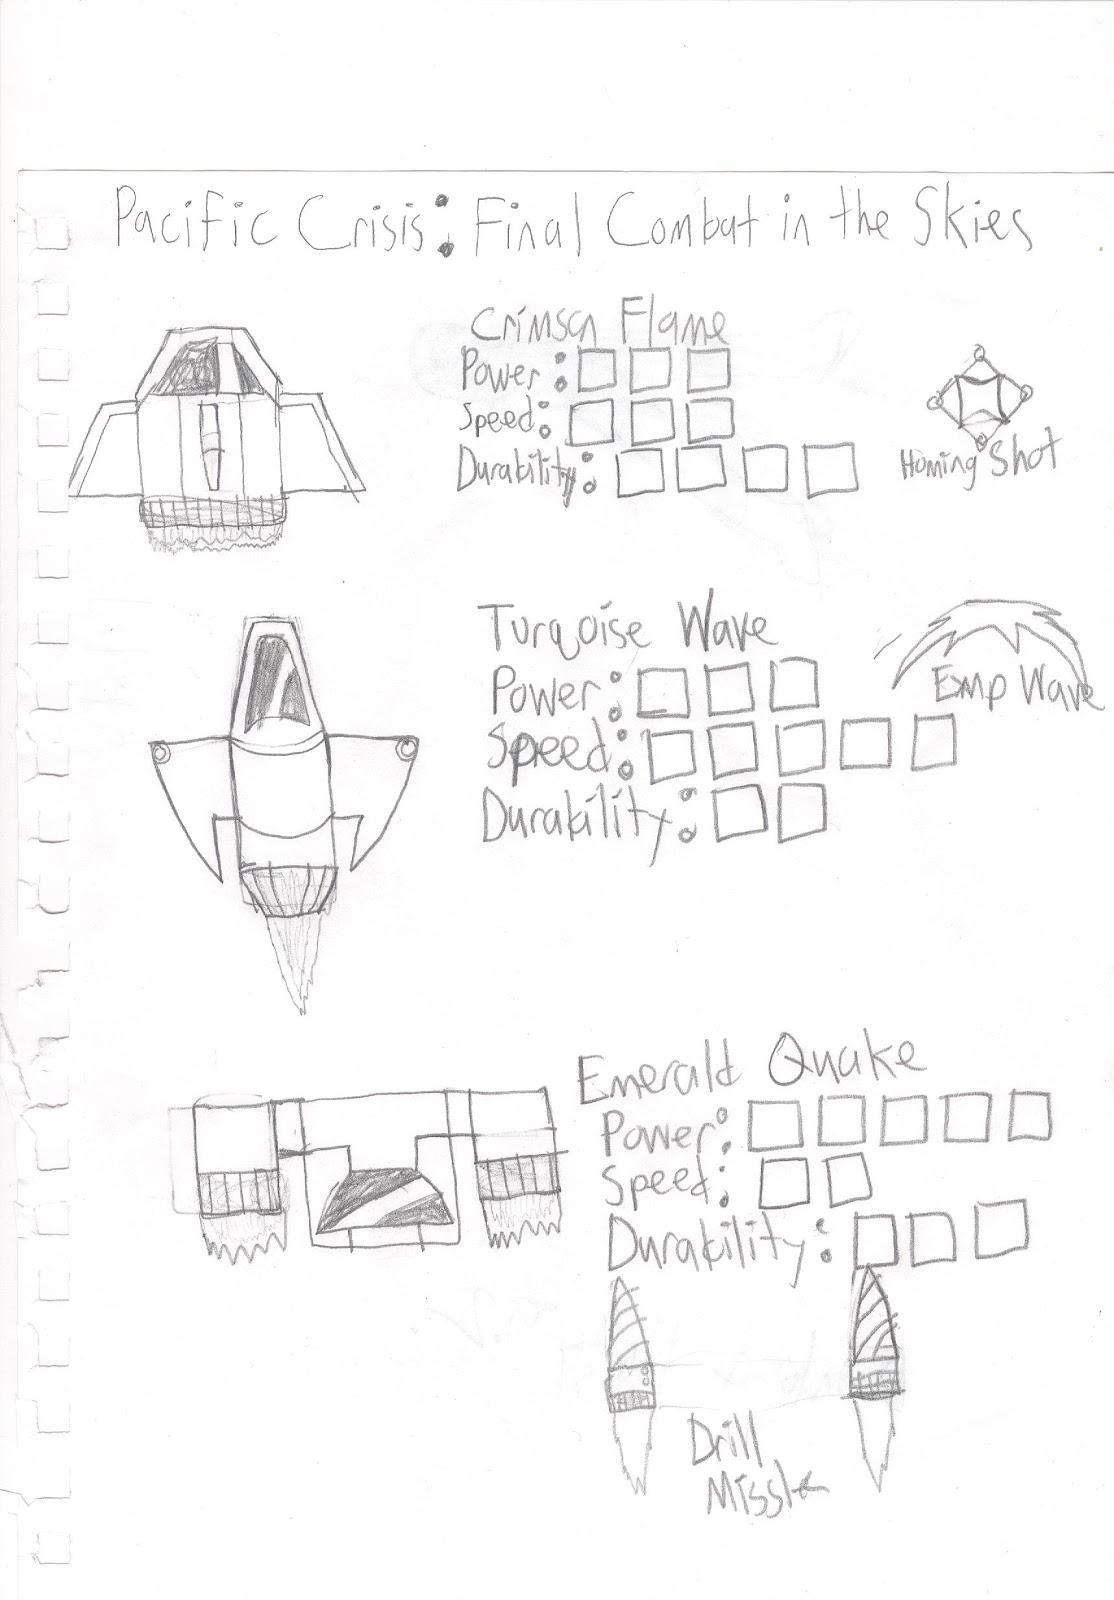 Pacific Crisis: Final Combat in the Skies
Crimson Flame
Power:
Speed:
Durability:
Homing Shot
Turqoise Wave
Power:
Speed:
Durability:
Emp Wave
Emerald Quake
Power:
Speed:
Durability:
Drill
Missle